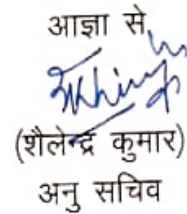 आज्ञा से,
(शैलेन्द्र कुमार)
अनु सचिव